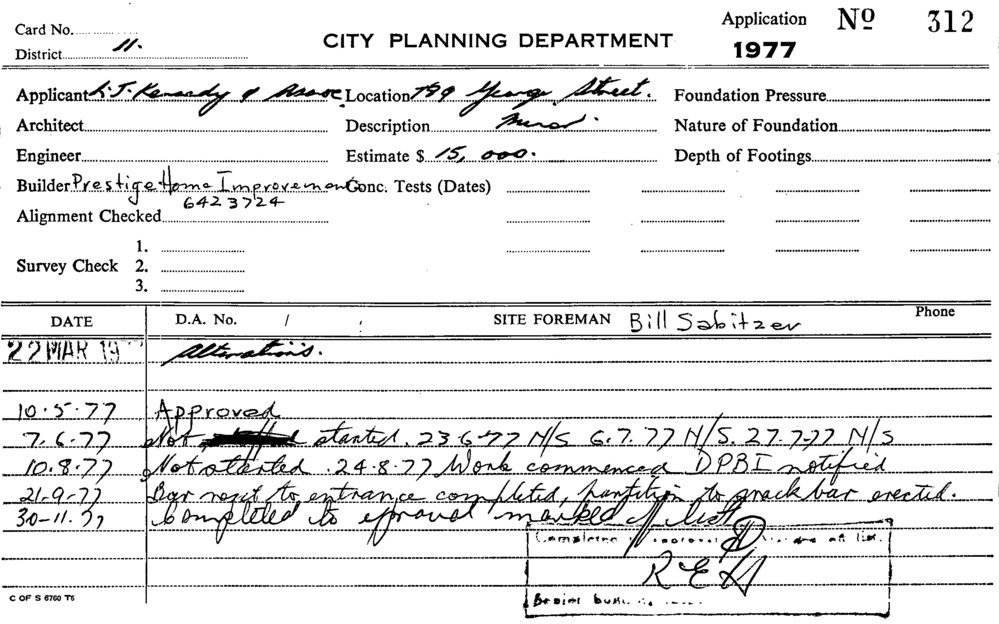 Card No.
District 11.
CITY PLANNING DEPARTMENT
Application Nº 312
1977
Applicant L.J. Kennedy & Assoc Location 799 George Street. Foundation Pressure
Architect Description Minor. Nature of Foundation
Engineer Estimate $ 15,000. Depth of Footings
Builder Prestige Home Improvement Conc. Tests (Dates)
6423724
Alignment Checked
1.
Survey Check 2.
3.
DATE D.A. No. / : SITE FOREMAN Bill Sabitzer Phone
22 MAR 19 Alterations.
10.5.77 Approved
7.6.77 Not started. 23-6-77 N/S 6.7.77 N/S. 27.7.77 N/S
10.8.77 Not started. 24.8.77 Work commenced DPBI notified
21.9.77 Bar to entrance completed, partition to snack bar erected.
30-11.77 Completed to marked off list
Completed off list.
REH
C OF S 6760 T6